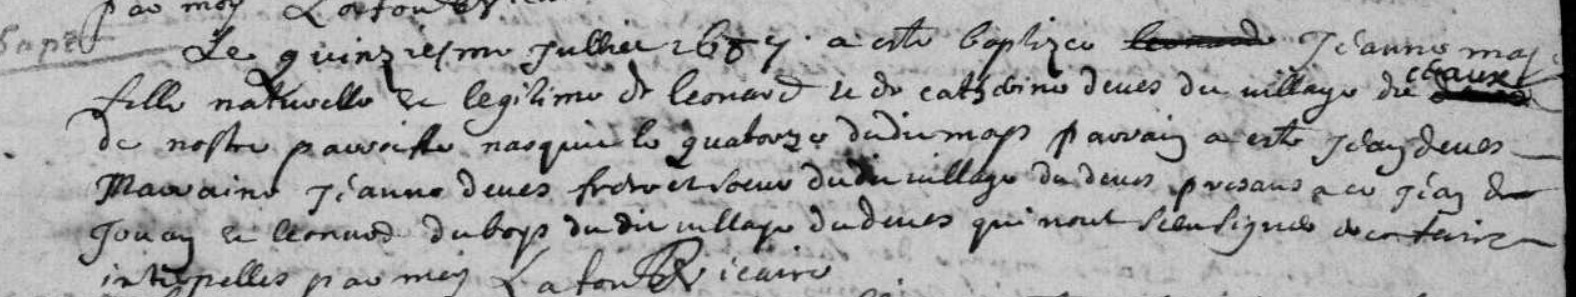 par moy
Bapt
Le quinziesme Juillet 1687 a este baptizee Jeanne
fille naturelle et legitime de leonard et de catherine deues du village du chaux
de nostre parroisse nasquit le quatorze dudit moys parrain a este Jean deues
Marraine Jeanne deues frere et soeur dudit village du deues presans a ce Jean
et leonard duboys dudit village du deues qui nont sceu signer de ce faire
interpelles par moy Vicaire